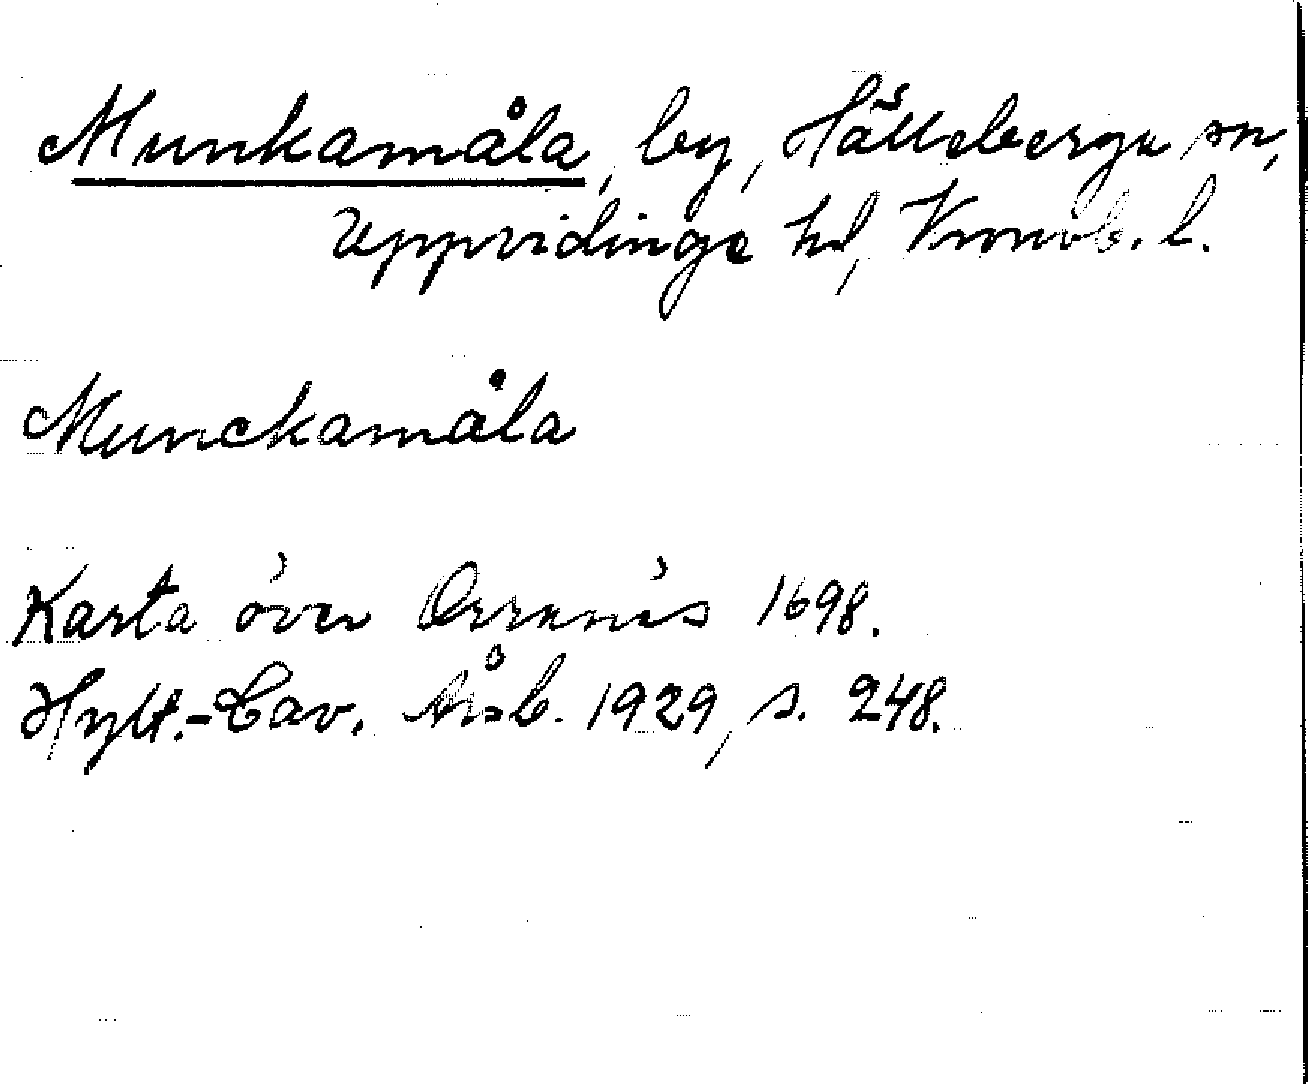 Munkamåla, by, Hälleberga sn,
Uppvidinge hd, Kronob. l.
Munckamåla
Karta över Orrenäs 1698.
Hylt.-Cav. Årsb. 1929, s. 248.